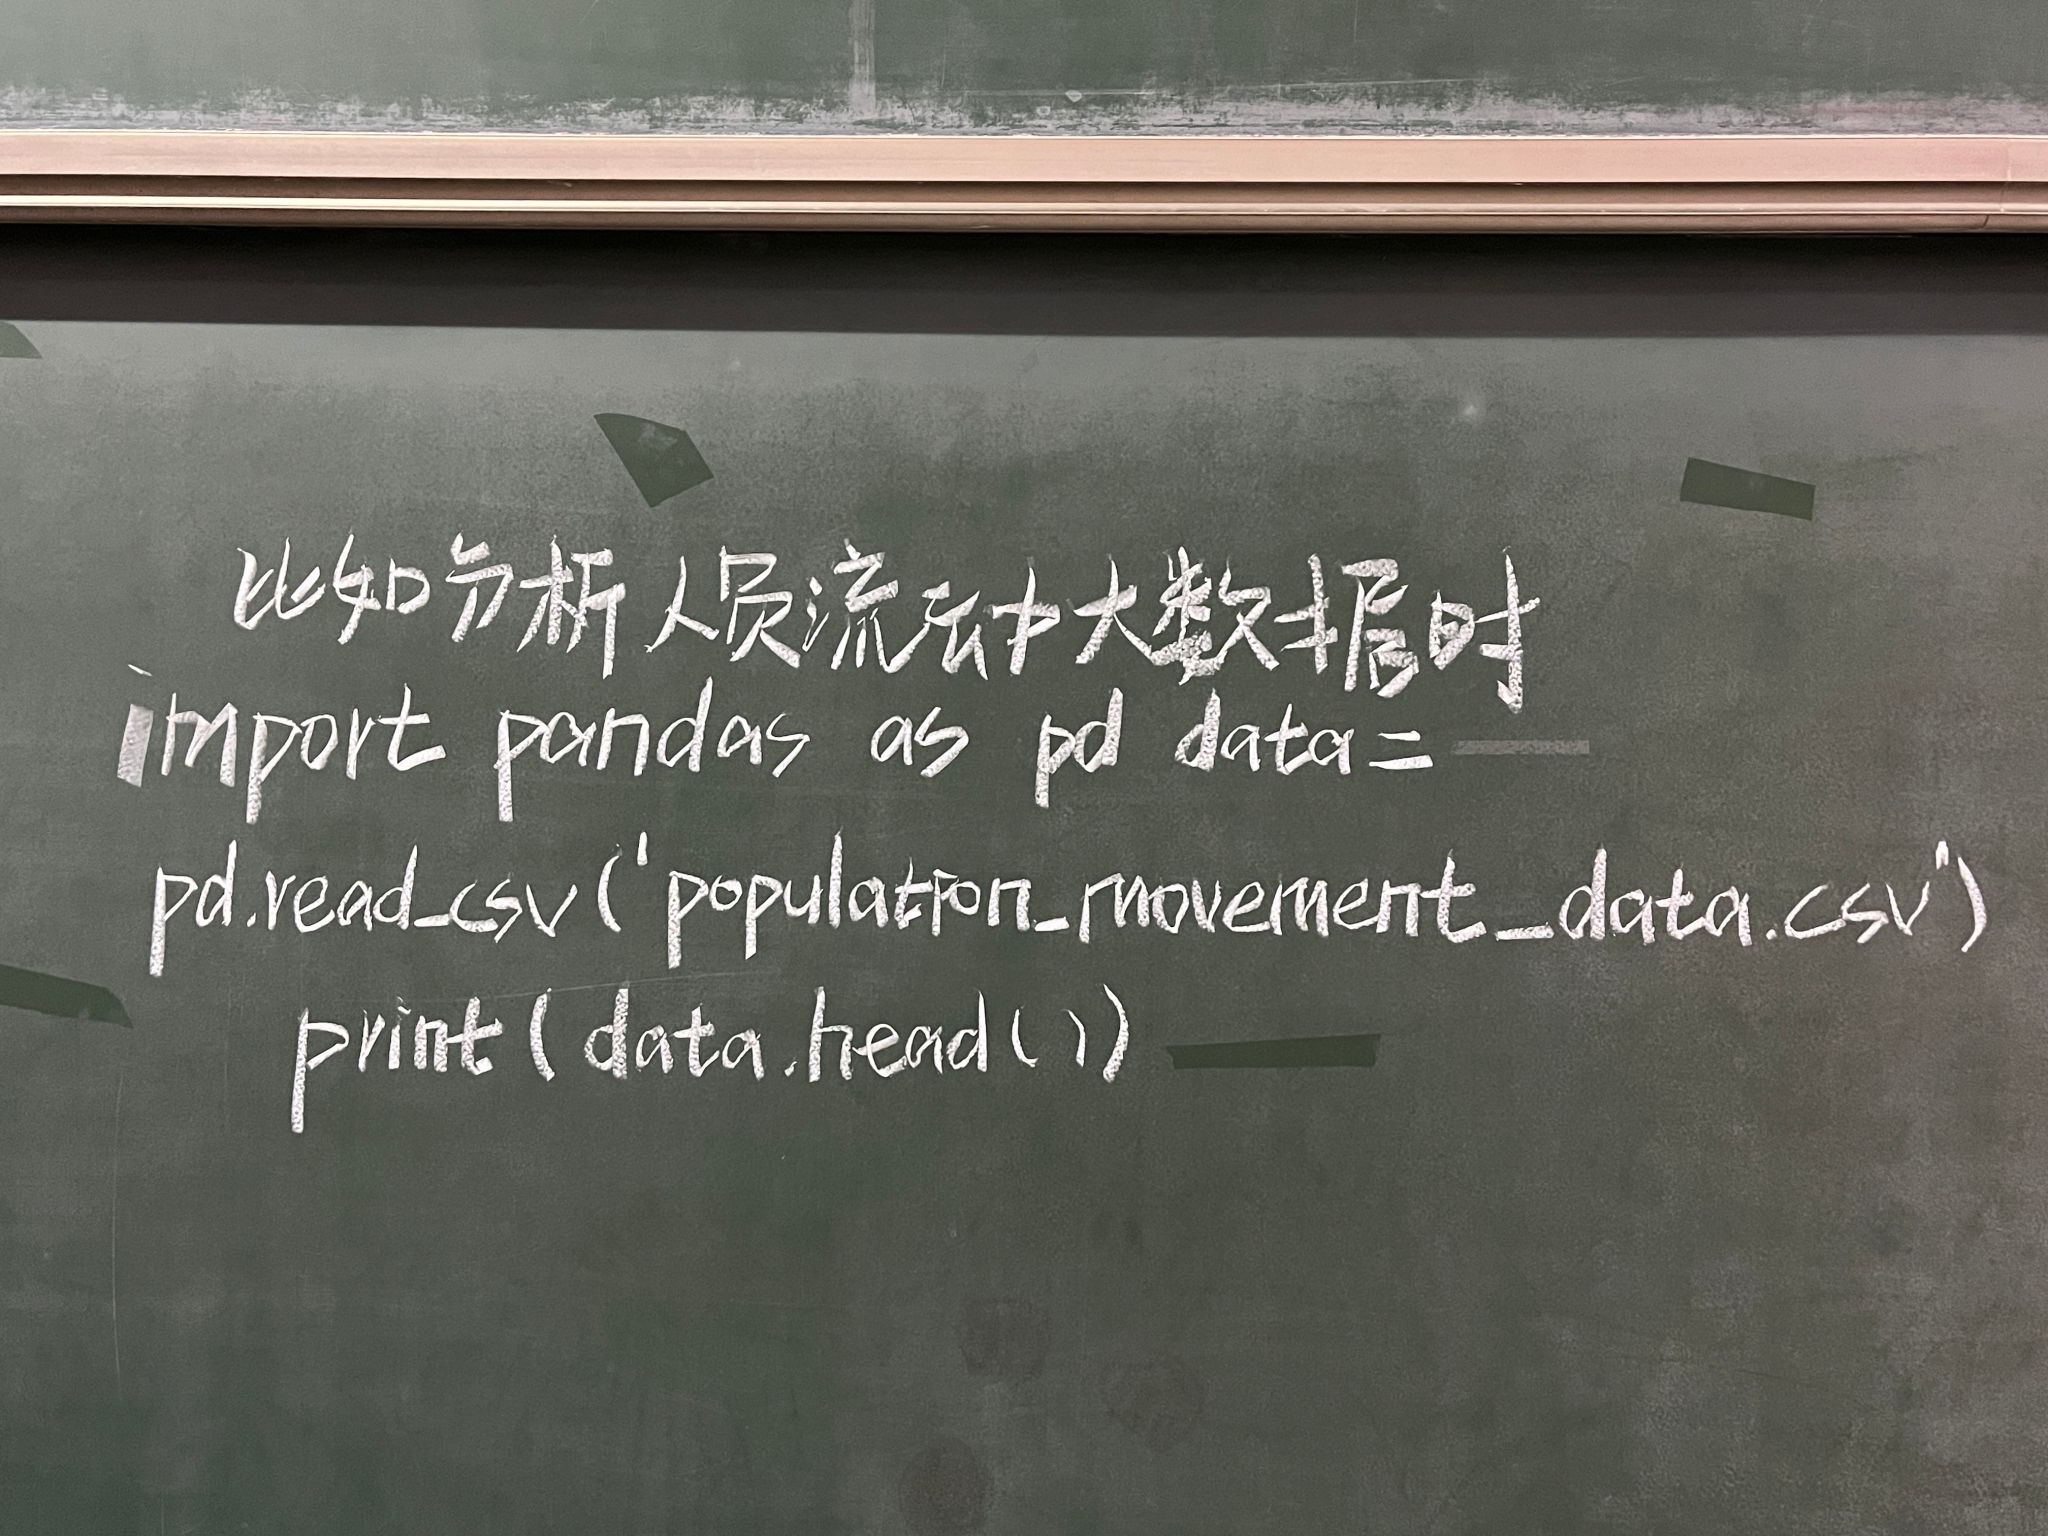 比如分析人员流动大数据时
import pandas as pd data=
pd.read_csv('population_movement_data.csv')
print(data.head())